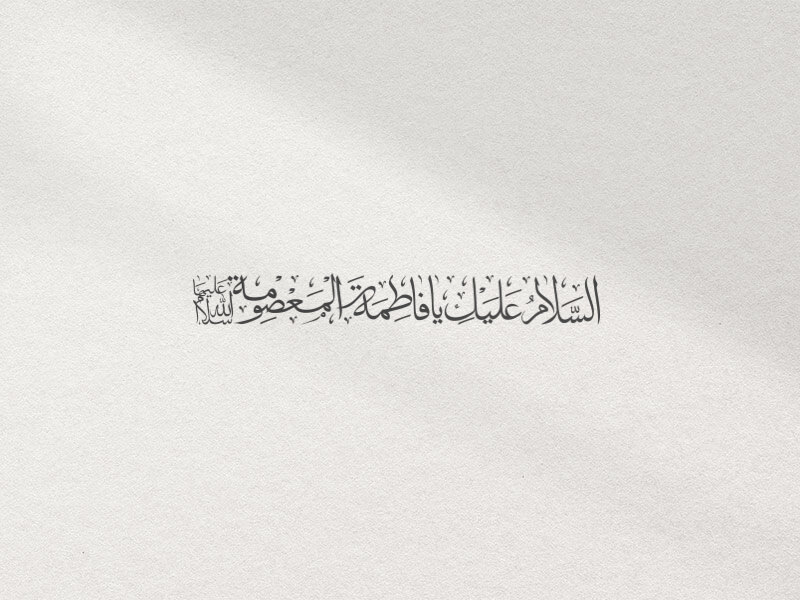 السَّلامُ عَلَيْكِ يا فاطِمَةَ الْمَعْصُومَة سلام الله عَلَيْها